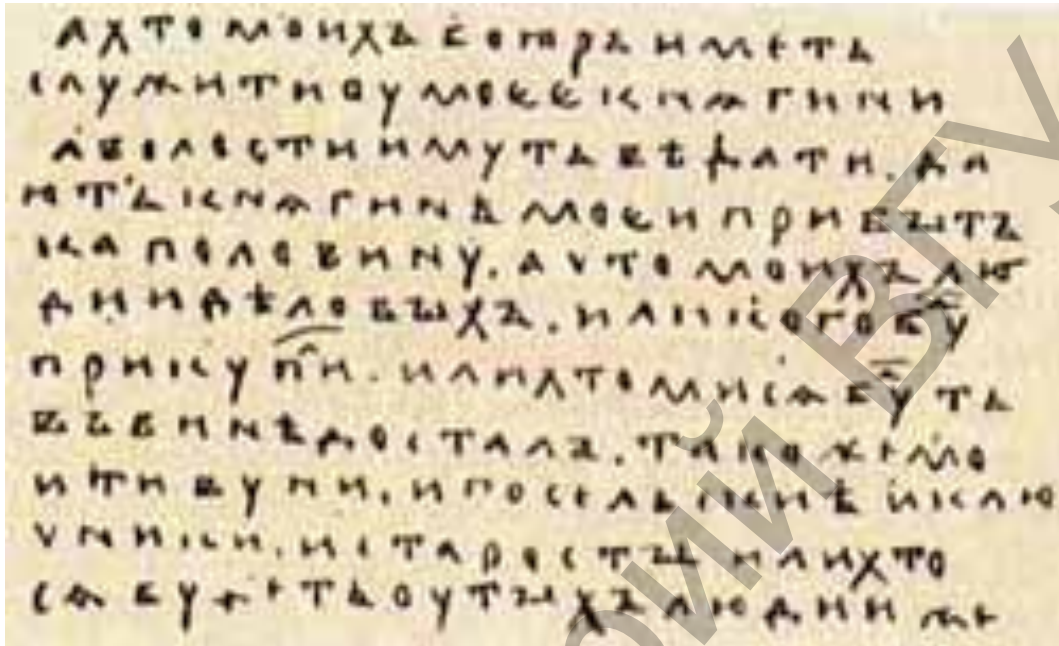 а хто моихъ боꙗръ иметь
служити оу моеє кнѧгини
а волости имуть вѣдати. да
ють кнѧгинѣ моєи прибыт
ка половину. а что моихъ лю
дии дѣловыхъ. или кого бу
прикупи. или хто ми сѧ буть
въ винѣ досталъ. тако же мо
и тивуни. и посельскиѣ и клю
чники. и старосты или хто
сѧ будеть оу тыхъ людии же
ВГУ